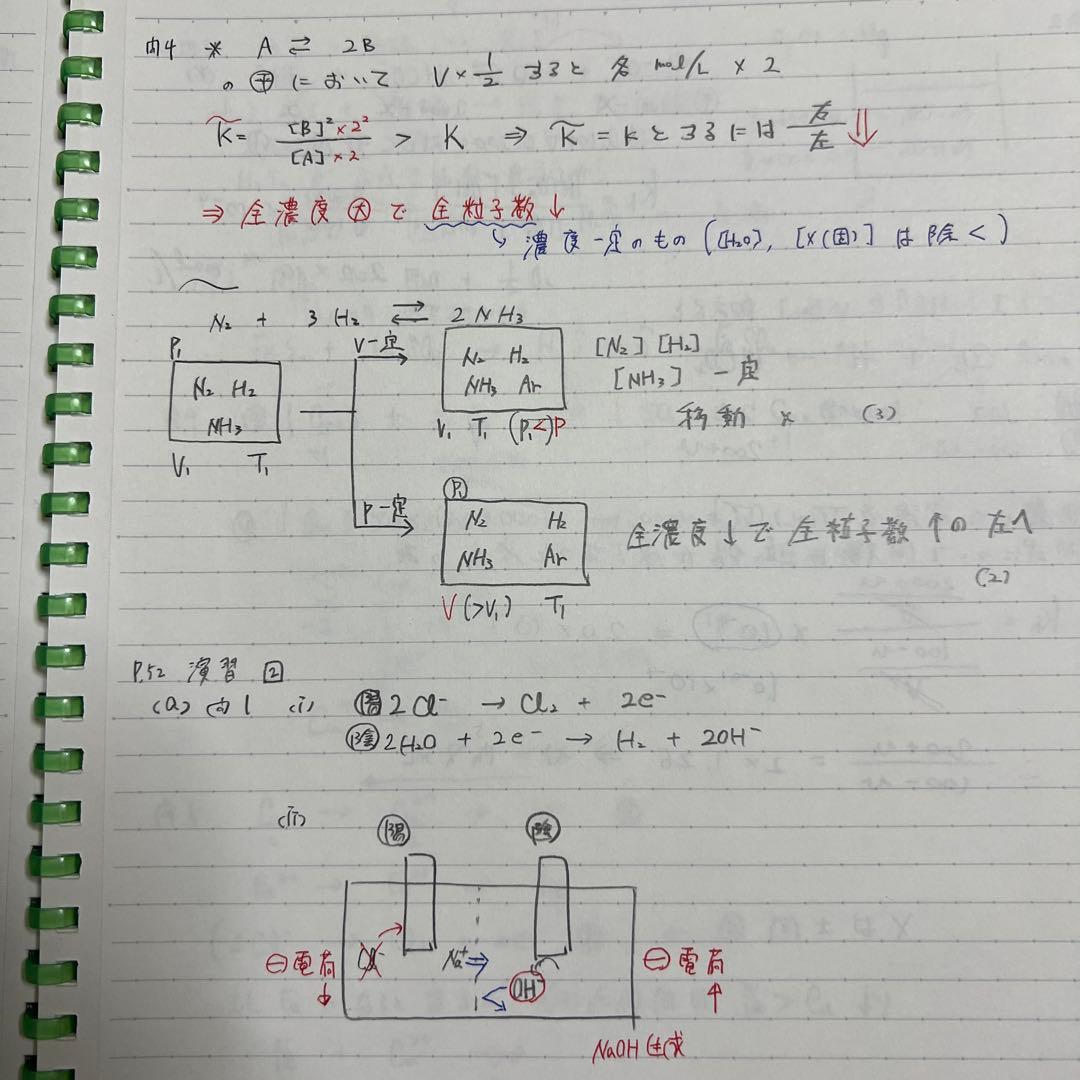 内4 * A ⇄ 2B
の㊉において V×1/2 すると 各 mol/L × 2
K̃ = [B]²×2² / [A]×2 > K ⇒ K̃ = K とするには 右/左 ⇓
⇒ 全濃度因で全粒子数↓
↳ 濃度一定のもの ([H₂O], [X(固)] は除く)
N₂ + 3H₂ ⇄ 2NH₃
P₁
N₂ H₂
NH₃
V₁ T₁
V一定
N₂ H₂
NH₃ Ar
V₁ T₁ (P₁<)P
[N₂] [H₂]
[NH₃] 一定
移動 × (3)
P一定
P₁
N₂ H₂
NH₃ Ar
V(>V₁) T₁
全濃度↓で全粒子数↑の左へ
(2)
P.52 演習 2
(a) 内1 (i) 陽 2Cl⁻ → Cl₂ + 2e⁻
陰 2H₂O + 2e⁻ → H₂ + 2OH⁻
(ii) 陽 陰
⊖電荷↓
Cl⁻
Na⁺ ⇒
OH⁻
⊖電荷↑
NaOH 生成